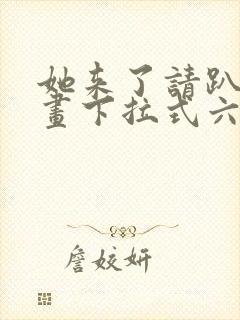 她来了請趴
畫下拉式六
詹姣妍